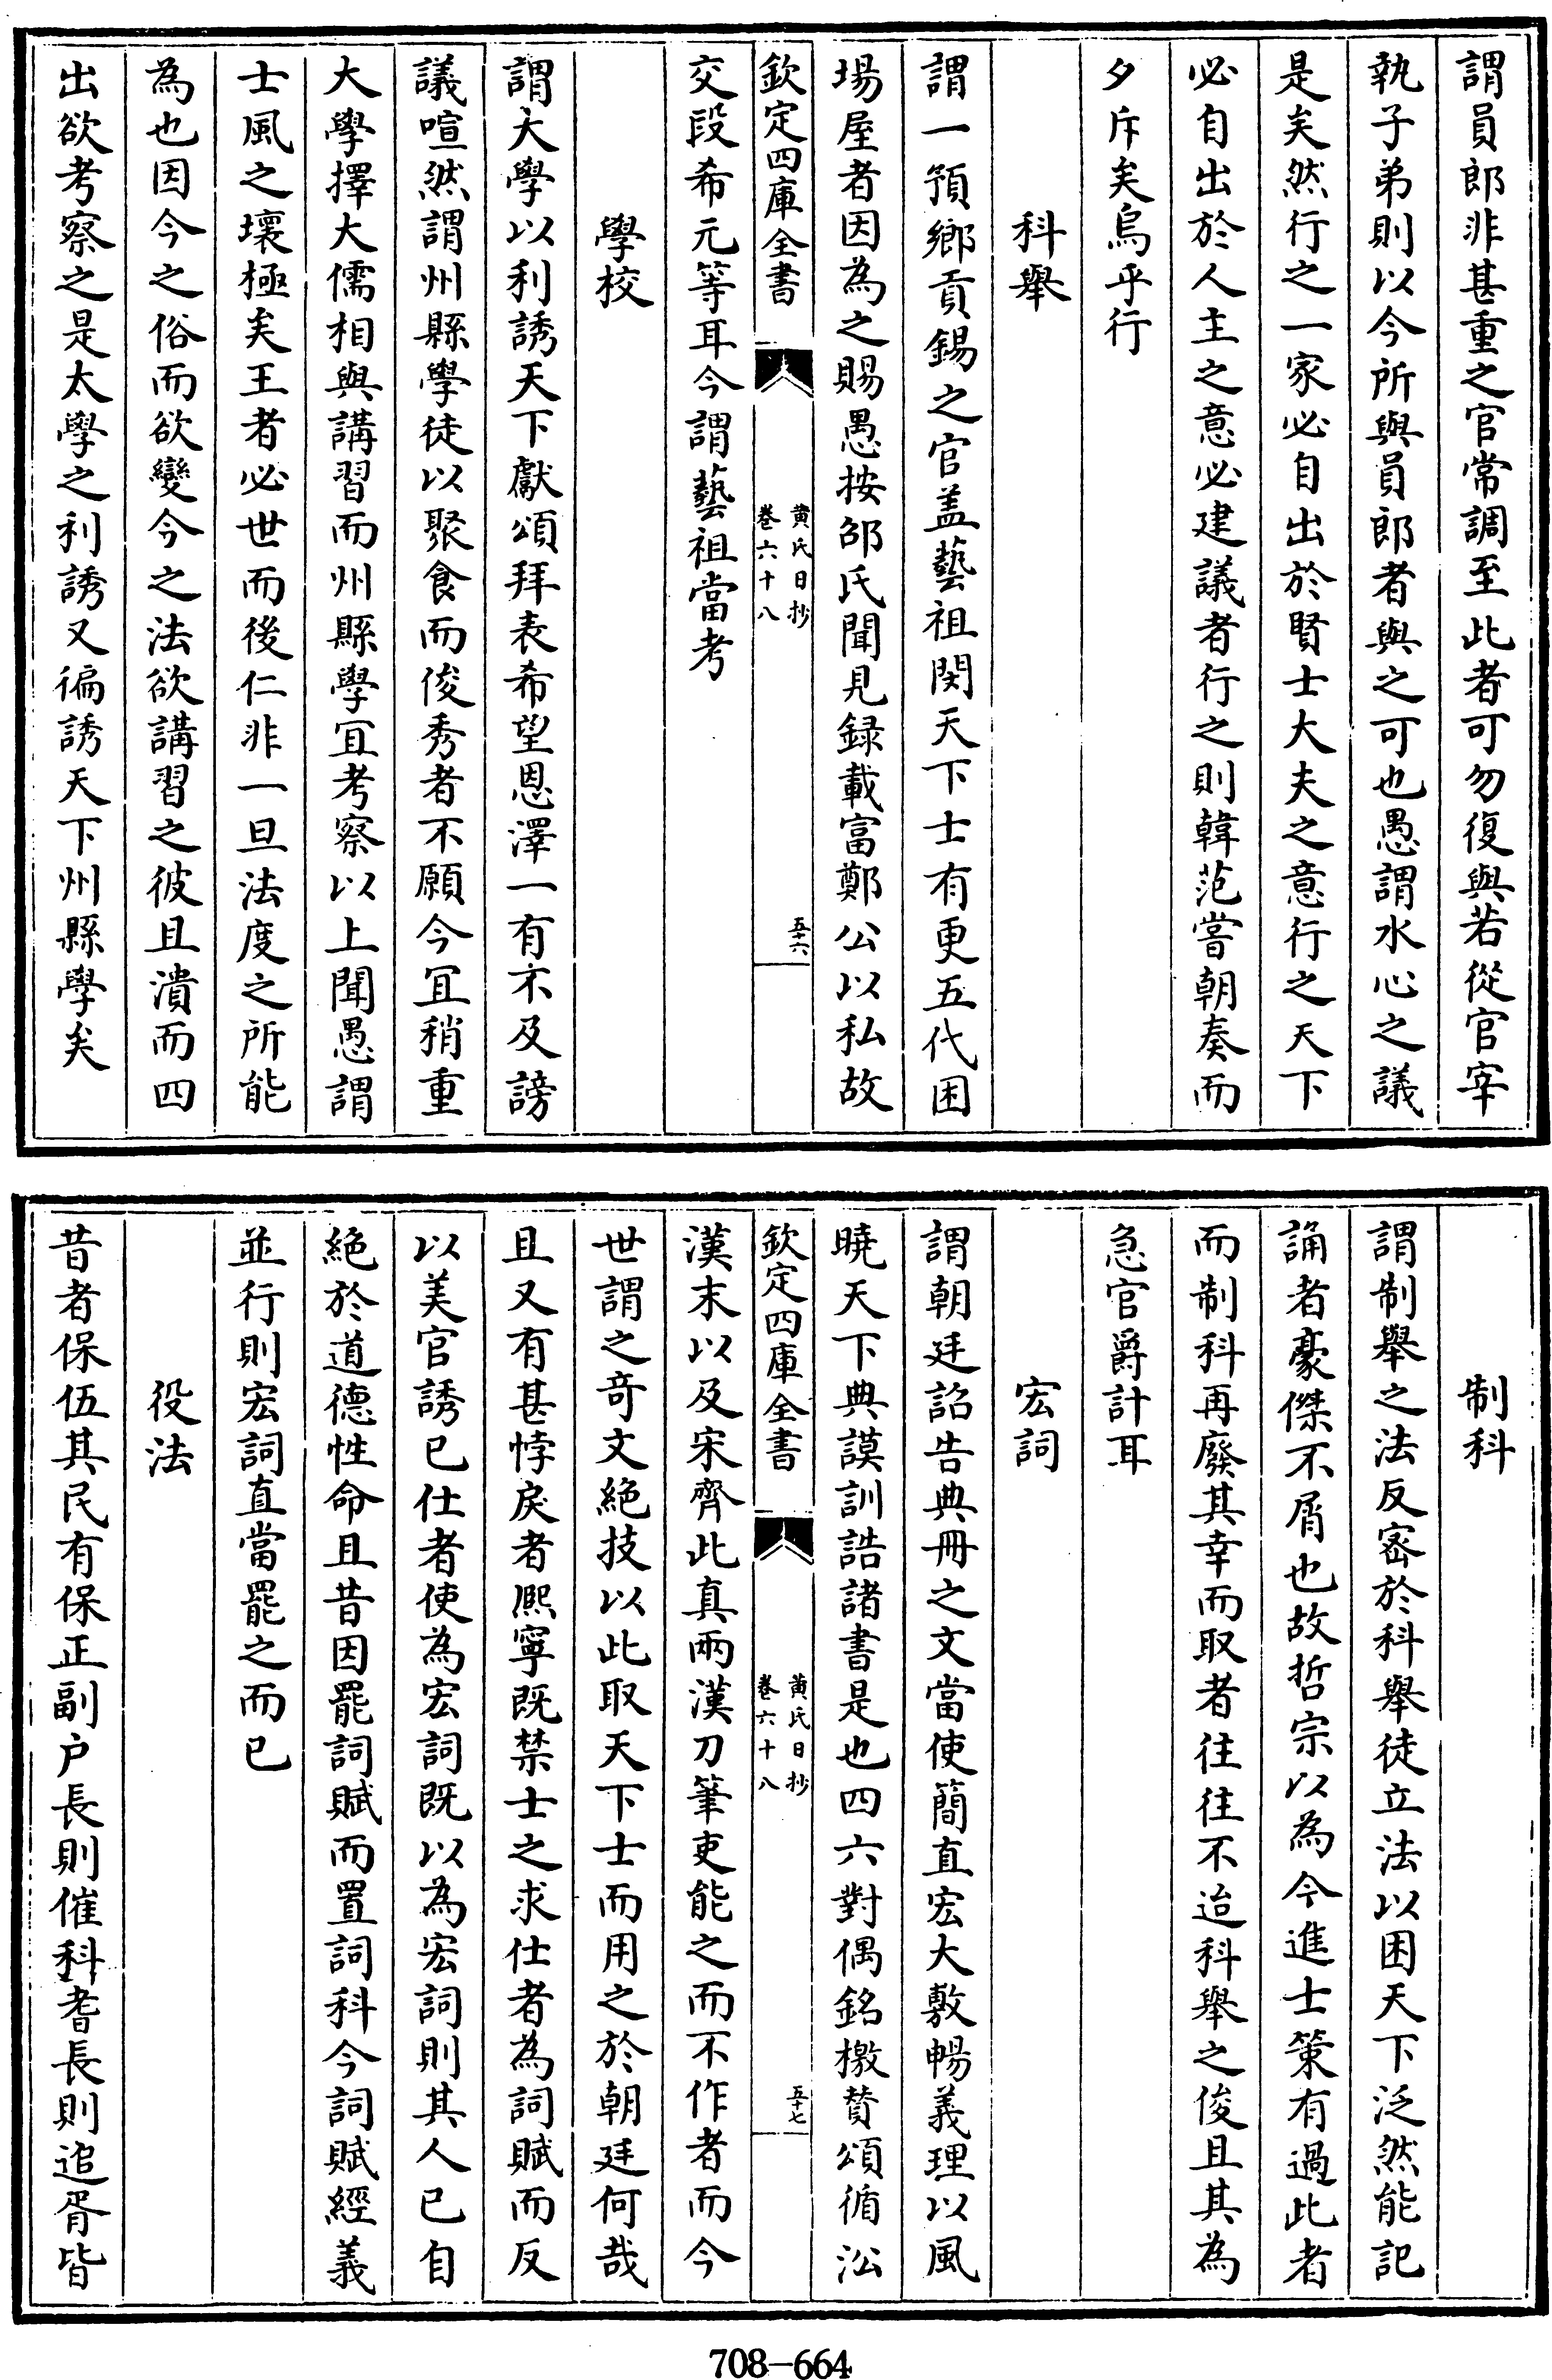 謂員郎非甚重之官常調至此者可勿復與若從官宰
執子弟則以今所與員郎者與之可也愚謂水心之議
是矣然行之一家必自出於賢士大夫之意行之天下
必自出於人主之意必建議者行之則韓范嘗朝奏而
夕斥矣烏乎行
科舉
謂一預鄉貢錫之官盖藝祖閔天下士有更五代困
場屋者因為之賜愚按邵氏聞見録載富鄭公以私故
欽定四庫全書
黄氏日抄
卷六十八
五十六
交段希元等耳今謂藝祖當考
學校
謂大學以利誘天下獻頌拜表希望恩澤一有不及謗
議喧然謂州縣學徒以聚食而俊秀者不願今宜稍重
大學擇大儒相與講習而州縣學宜考察以上聞愚謂
士風之壞極矣王者必世而後仁非一旦法度之所能
為也因今之俗而欲變今之法欲講習之彼且潰而四
出欲考察之是太學之利誘又徧誘天下州縣學矣
制科
謂制舉之法反密於科舉徒立法以困天下泛然能記
誦者豪傑不屑也故哲宗以為今進士策有過此者
而制科再廢其幸而取者往往不迨科舉之俊且其為
急官爵計耳
宏詞
謂朝廷詔告典冊之文當使簡直宏大敷暢義理以風
曉天下典謨訓誥諸書是也四六對偶銘檄賛頌循㳂
欽定四庫全書
黄氏日抄
卷六十八
五十七
漢末以及宋齊此真兩漢刀筆吏能之而不作者而今
世謂之竒文絶技以此取天下士而用之於朝廷何哉
且又有甚悖戾者熈寧既禁士之求仕者為詞賦而反
以美官誘已仕者使為宏詞既以為宏詞則其人已自
絶於道德性命且昔因罷詞賦而置詞科今詞賦經義
並行則宏詞直當罷之而已
役法
昔者保伍其民有保正副户長則催科耆長則追胥皆
708-664